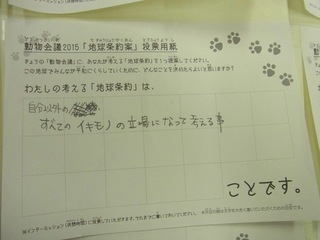 動物会議2015「地球条約案」投票用紙
きょうの「動物会議」に、あなたが考える「地球条約」を1つ提案してください。
この地球でみんなが平和にくらしていくために、どんなことを決めたらよいと思いますか?
わたしの考える「地球条約」は、
自分以外の
すべてのイキモノの立場になって考える事
ことです。